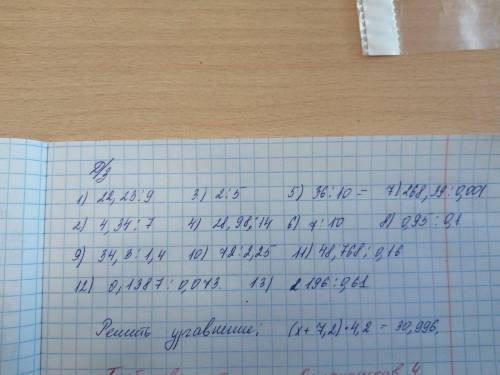 Д/з
1) 22,23:9 3) 2:5 5) 36:10= 7) 268,29:0,001
2) 4,34:7 4) 28,98:14 6) 7:10 8) 0,95:0,1
9) 34,3:1,4 10) 72:2,25 11) 48,768:0,16
12) 0,1387:0,073. 13) 2196:0,61
Решить уравнение: (x+7,2)*4,2=30,996.